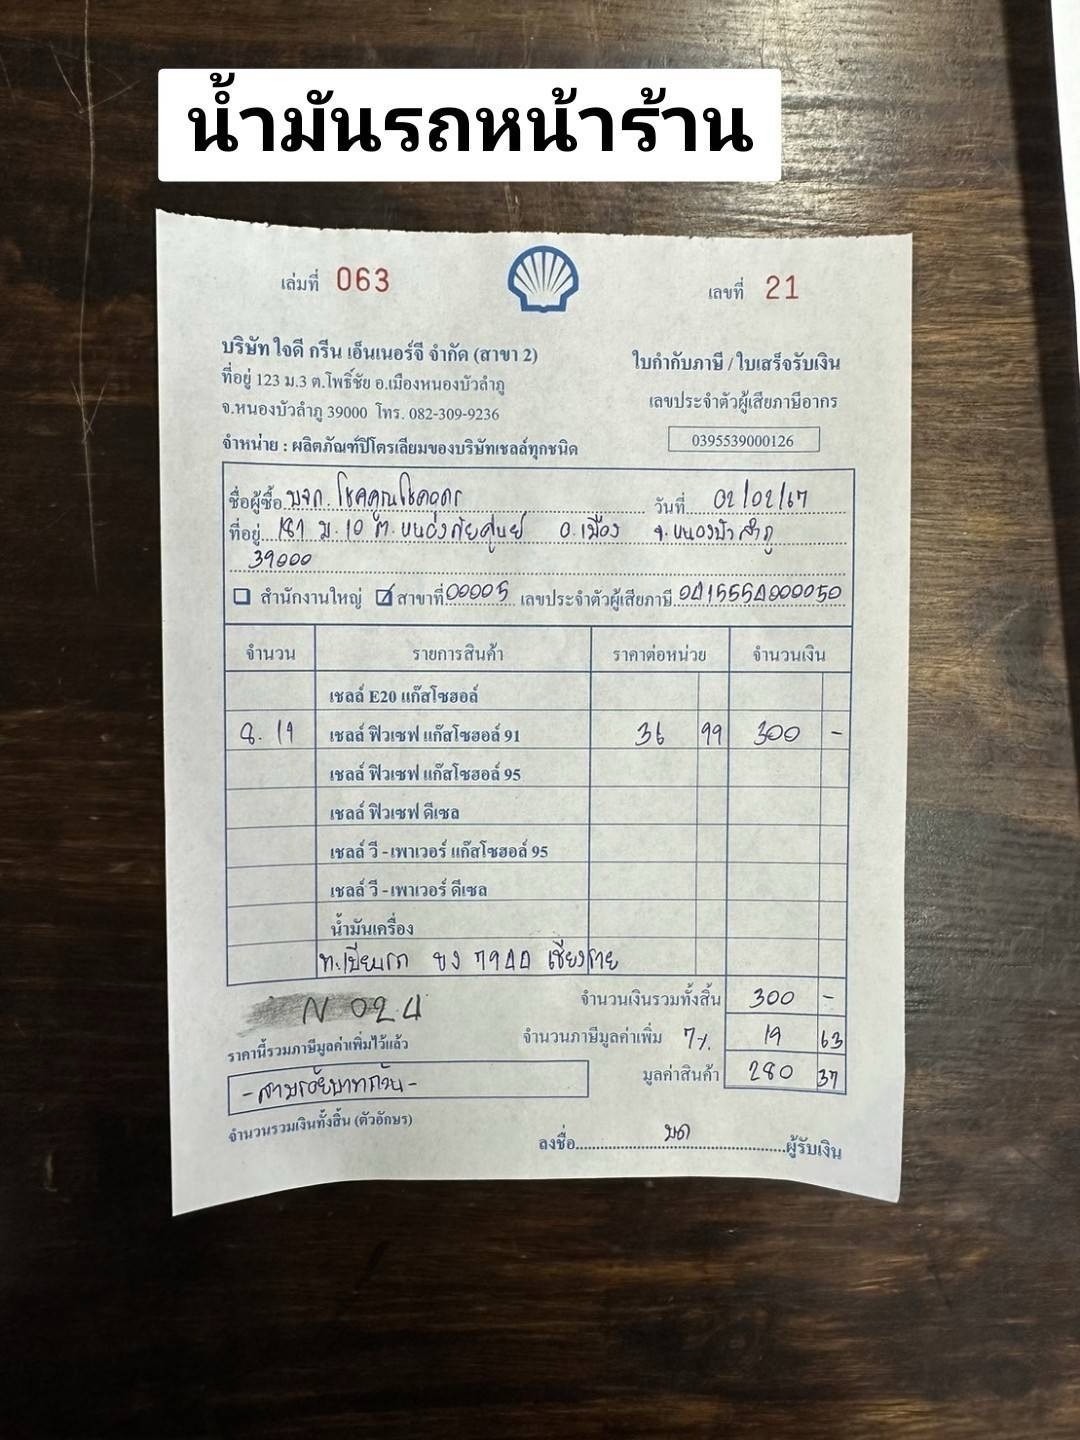 น้ำมันรถหน้าร้าน
เล่มที่ 063
เลขที่ 21
บริษัท ใจดี กรีน เอ็นเนอร์จี จำกัด (สาขา 2)
ใบกำกับภาษี / ใบเสร็จรับเงิน
ที่อยู่ 123 ม.3 ต.โพธิ์ชัย อ.เมืองหนองบัวลำภู
เลขประจำตัวผู้เสียภาษีอากร
จ.หนองบัวลำภู 39000 โทร. 082-309-9236
0395539000126
จำหน่าย : ผลิตภัณฑ์ปิโตรเลียมของบริษัทเชลล์ทุกชนิด
ชื่อผู้ซื้อ บจก. โชคคูณโชคอุดร วันที่ 02/02/67
ที่อยู่ 181 ม.10 ต. หนองภัยศูนย์ อ.เมือง จ.หนองบัวลำภู
39000
สำนักงานใหญ่ สาขาที่ 00005 เลขประจำตัวผู้เสียภาษี 0415554000050
จำนวน รายการสินค้า ราคาต่อหน่วย จำนวนเงิน
เชลล์ E20 แก๊สโซฮอล์
8.11 เชลล์ ฟิวเซฟ แก๊สโซฮอล์ 91 36 99 300 -
เชลล์ ฟิวเซฟ แก๊สโซฮอล์ 95
เชลล์ ฟิวเซฟ ดีเซล
เชลล์ วี - เพาเวอร์ แก๊สโซฮอล์ 95
เชลล์ วี - เพาเวอร์ ดีเซล
น้ำมันเครื่อง
ท.เบียนรถ ยง 7944 เชียงราย
จำนวนเงินรวมทั้งสิ้น 300 -
N 024
จำนวนภาษีมูลค่าเพิ่ม 7% 19 63
ราคานี้รวมภาษีมูลค่าเพิ่มไว้แล้ว
มูลค่าสินค้า 280 37
- สามร้อยบาทถ้วน -
จำนวนรวมเงินทั้งสิ้น (ตัวอักษร)
ลงชื่อ มด ผู้รับเงิน